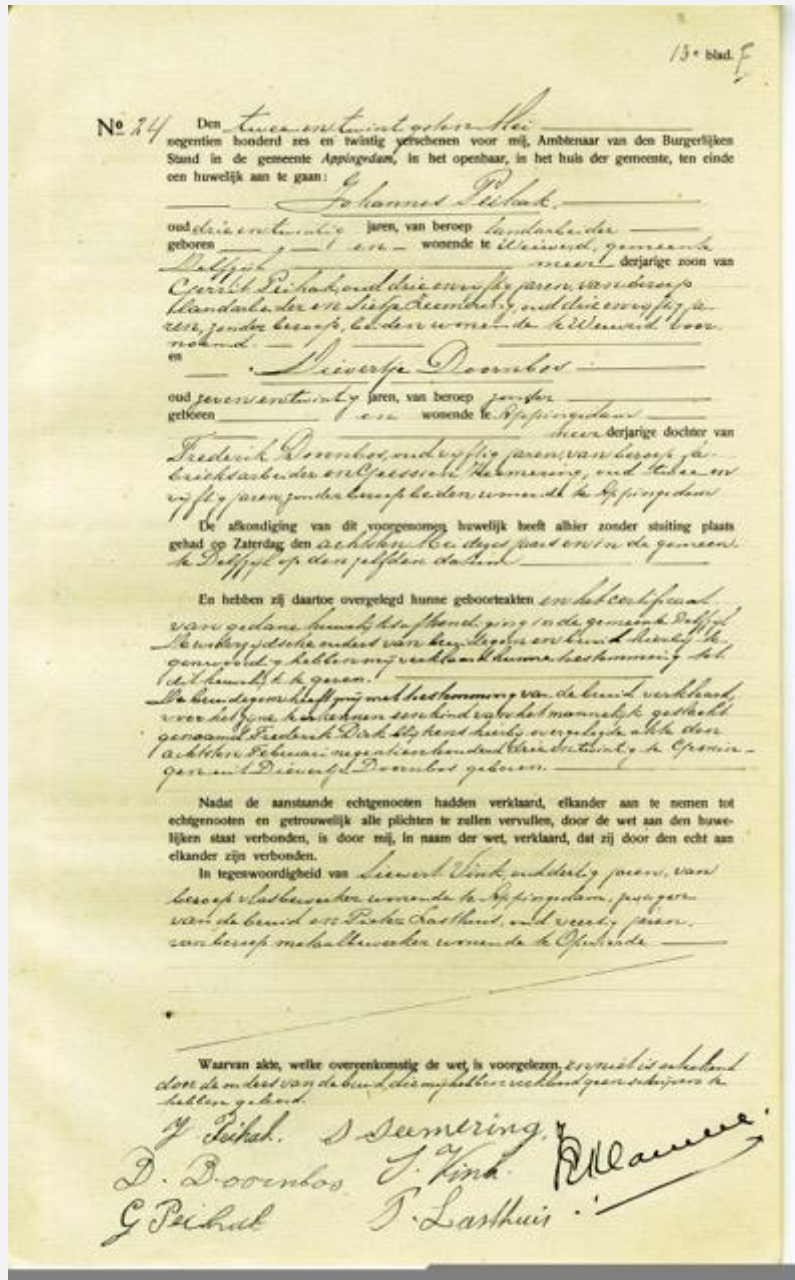 13e blad. F
No 24 Den twee en twintigsten Mei
negentien honderd zes en twintig verschenen voor mij, Ambtenaar van den Burgerlijken
Stand in de gemeente Appingedam, in het openbaar, in het huis der gemeente, ten einde
een huwelijk aan te gaan:
Johannes Peihak,
oud drie en twintig jaren, van beroep landarbeider
geboren en wonende te Weiwerd, gemeente
Delfzijl meer derjarige zoon van
Gerrit Peihak, oud drie en vijftig jaren, van beroep
landarbeider en Sietje Seemering, oud drie en vijftig ja-
ren, zonder beroep, beiden wonende te Weiwerd voor-
noemd.
en
Dievertje Doornbos
oud zeven en twintig jaren, van beroep zonder
geboren en wonende te Appingedam
meer derjarige dochter van
Frederik Doornbos, oud vijftig jaren, van beroep fa-
brieksarbeider en Geessien Heemering, oud twee en
vijftig jaren, zonder beroep beiden wonende te Appingedam
De afkondiging van dit voorgenomen huwelijk heeft alhier zonder stuiting plaats
gehad op Zaterdag den achtsten Mei dezes jaars en in de gemeen-
te Delfzijl op denzelfden datum
En hebben zij daartoe overgelegd hunne geboorteakten en het certificaat
van gedane huwelijksafkondiging in de gemeente Delfzijl
De wederzijdsche ouders van bruidegom en bruid hierbij te-
genwoordig hebben mij verklaard hunne toestemming tot
dit huwelijk te geven.
De bruidegom heeft mij met toestemming van de bruid verklaard,
voor het zijne te erkennen een kind van het mannelijk geslacht
genaamd Frederik Dirk blijkens hierbij overgelegde akte den
achtsten Februari negentienhonderd drie en twintig te Gronin-
gen uit Dievertje Doornbos geboren.
Nadat de aanstaande echtgenooten hadden verklaard, elkander aan te nemen tot
echtgenooten en getrouwelijk alle plichten te zullen vervullen, door de wet aan den huwe-
lijken staat verbonden, is door mij, in naam der wet, verklaard, dat zij door den echt aan
elkander zijn verbonden.
In tegenwoordigheid van Siewert Vink, oud dertig jaren, van
beroep vlasbewerker wonende te Appingedam, zwager
van de bruid en Pieter Lasthuis, oud veertig jaren,
van beroep metaalbewerker wonende te Opwierde
Waarvan akte, welke overeenkomstig de wet, is voorgelezen, en niet is geteekend
door de ouders van de bruid, die mij hebben verklaard geen schrijven te
hebben geleerd.
J Peihak. S Seemering,
D. Doornbos S. Vink.
G Peihak P. Lasthuis